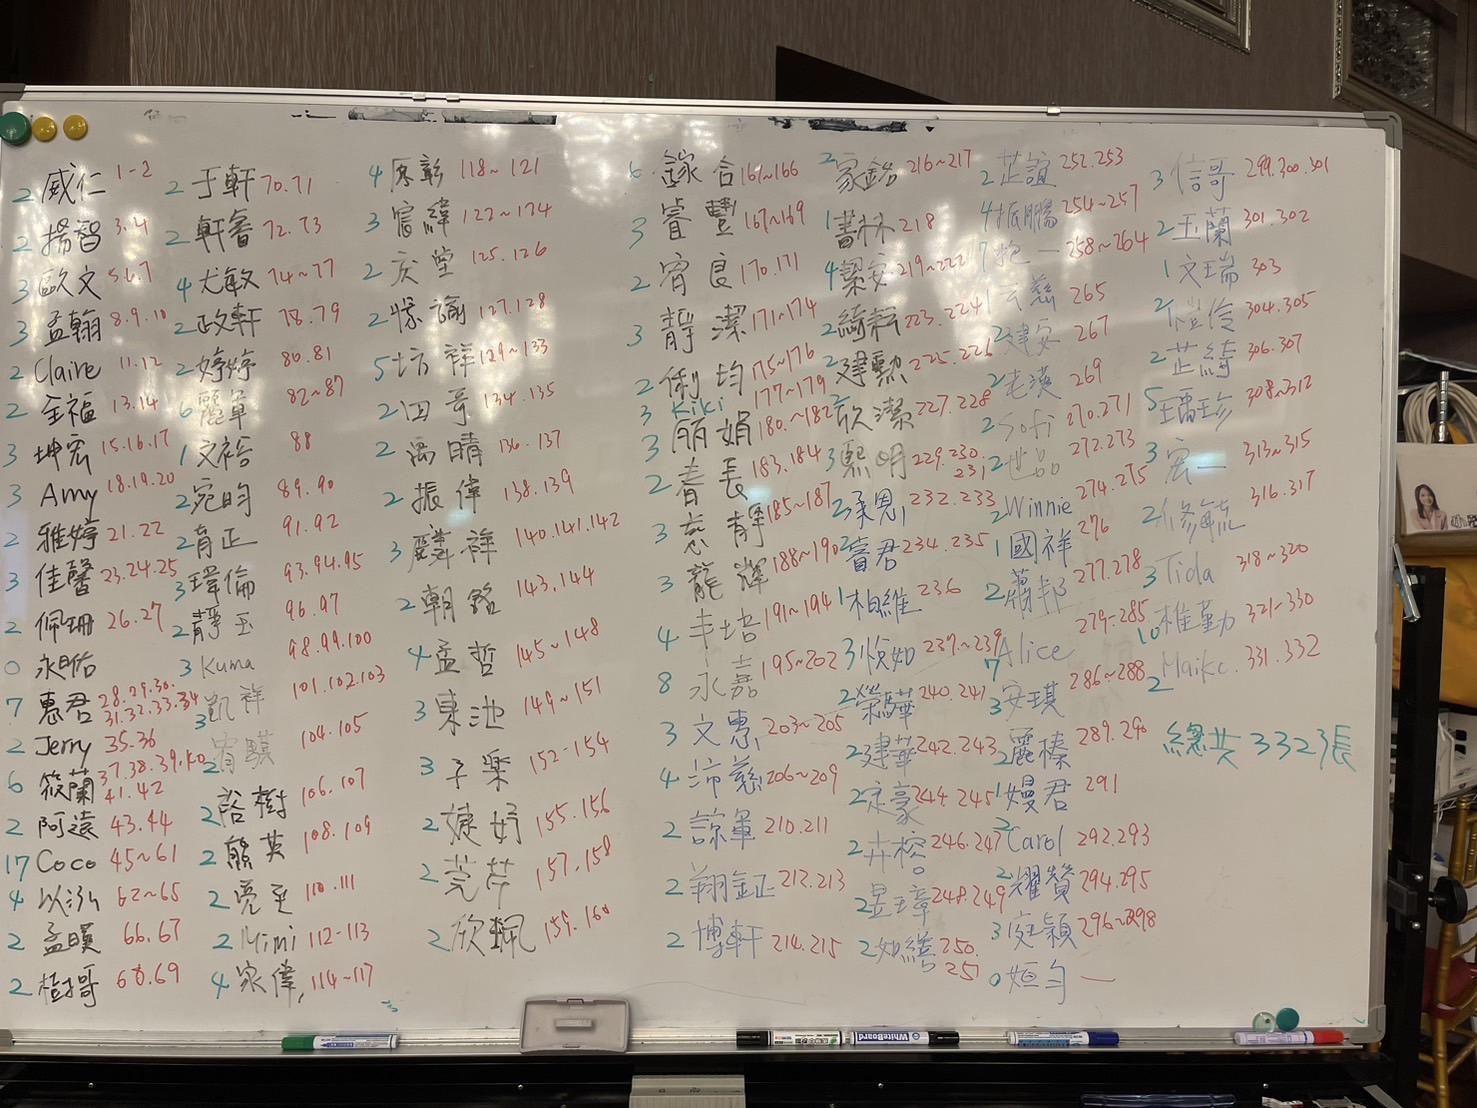 2 威仁 1-2
2 揚智 3.4
3 歐文 5.6.7
3 孟翰 8.9.10
2 Claire 11.12
2 全福 13.14
3 坤宏 15.16.17
3 Amy 18.19.20
2 雅婷 21.22
3 佳馨 23.24.25
2 佩珊 26.27
0 永佑
7 惠君 28.29.30.
31.32.33.34
2 Jerry 35.36
6 筱蘭 37.38.39.40
41.42
2 阿遠 43.44
17 Coco 45~61
4 以泓 62~65
2 孟暵 66.67
2 樹哥 68.69
2 于軒 70.71
2 軒睿 72.73
4 尤敏 74~77
2 政軒 78.79
2 婷婷 80.81
6 麗單 82~87
1 文裕 88
2 宛昀 89.90
2 育正 91.92
3 瑋倫 93.94.95
2 靜玉 96.97
3 Kuma 98.99.100
3 凱祥 101.102.103
2 宥騏 104.105
2 啓樹 106.107
2 熊英 108.109
2 亮至 110.111
2 Mimi 112-113
4 家偉 114~117
4 原彰 118~121
3 宦緯 122~124
2 庆堂 125.126
2 127.128
5 坊祥 129~133
2 四哥 134.135
2 禹晴 136.137
2 振偉 138.139
3 麟祥 140.141.142
2 朝銘 143,144
4 孟哲 145~148
3 東池 149~151
3 子樂 152-154
2 婕妤 155.156
2 莞芹 157,158
2 欣珮 159.160
6 鎵合 161~166
3 睿豐 167~169
2 宥良 170.171
3 靜潔 171~174
2 俐均 175~176
3 Kiki 177~179
3 丽娟 180.~182
2 青長 183.184
3 慈靜 185~187
3 龍輝 188~190
4 丰培 191~194
8 永嘉 195~202
3 文惠 203~205
4 沛慈 206~209
2 諒單 210.211
2 翔鉦 212.213
2 博軒 214.215
2 家銘 216~217
1 書林 218
4 絜安 219~222
2 綺耘 223.224
2 建勳 225.226
2 欣潔 227.228
3 熙明 229.230.
231
2 承恩 232.233
2 富君 234.235
1 柏維 236
3 悅如 237~239
2 榮驊 240.241
2 建華 242.243
2 永豪 244.245
2 卉榕 246.247
2 昱璋 248.249
2 如繐 250.
251
2 芷誼 252.253
4 振鵬 254~257
7 抱一 258~264
1 玄慈 265
2 建安 267
2 老漢 269
2 Sofi 270.271
2 世品 272.273
2 Winnie 274.275
1 國祥 276
2 蕭邦 277.278
7 Alice 279-285
3 安琪 286~288
2 麗榛 289.290
1 嫚君 291
2 Carol 292.293
2 耀贊 294.295
3 庭穎 296~298
0 姮勻 一
3 信哥 299.300.301
2 玉蘭 301.302
1 文瑞 303
2 304.305
2 芷綺 306.307
5 瑀珍 308~312
3 宏一 313~315
2 修毓 316.317
3 Tida 318~320
10 椎勤 321-330
2 Maike. 331.332
總共332張